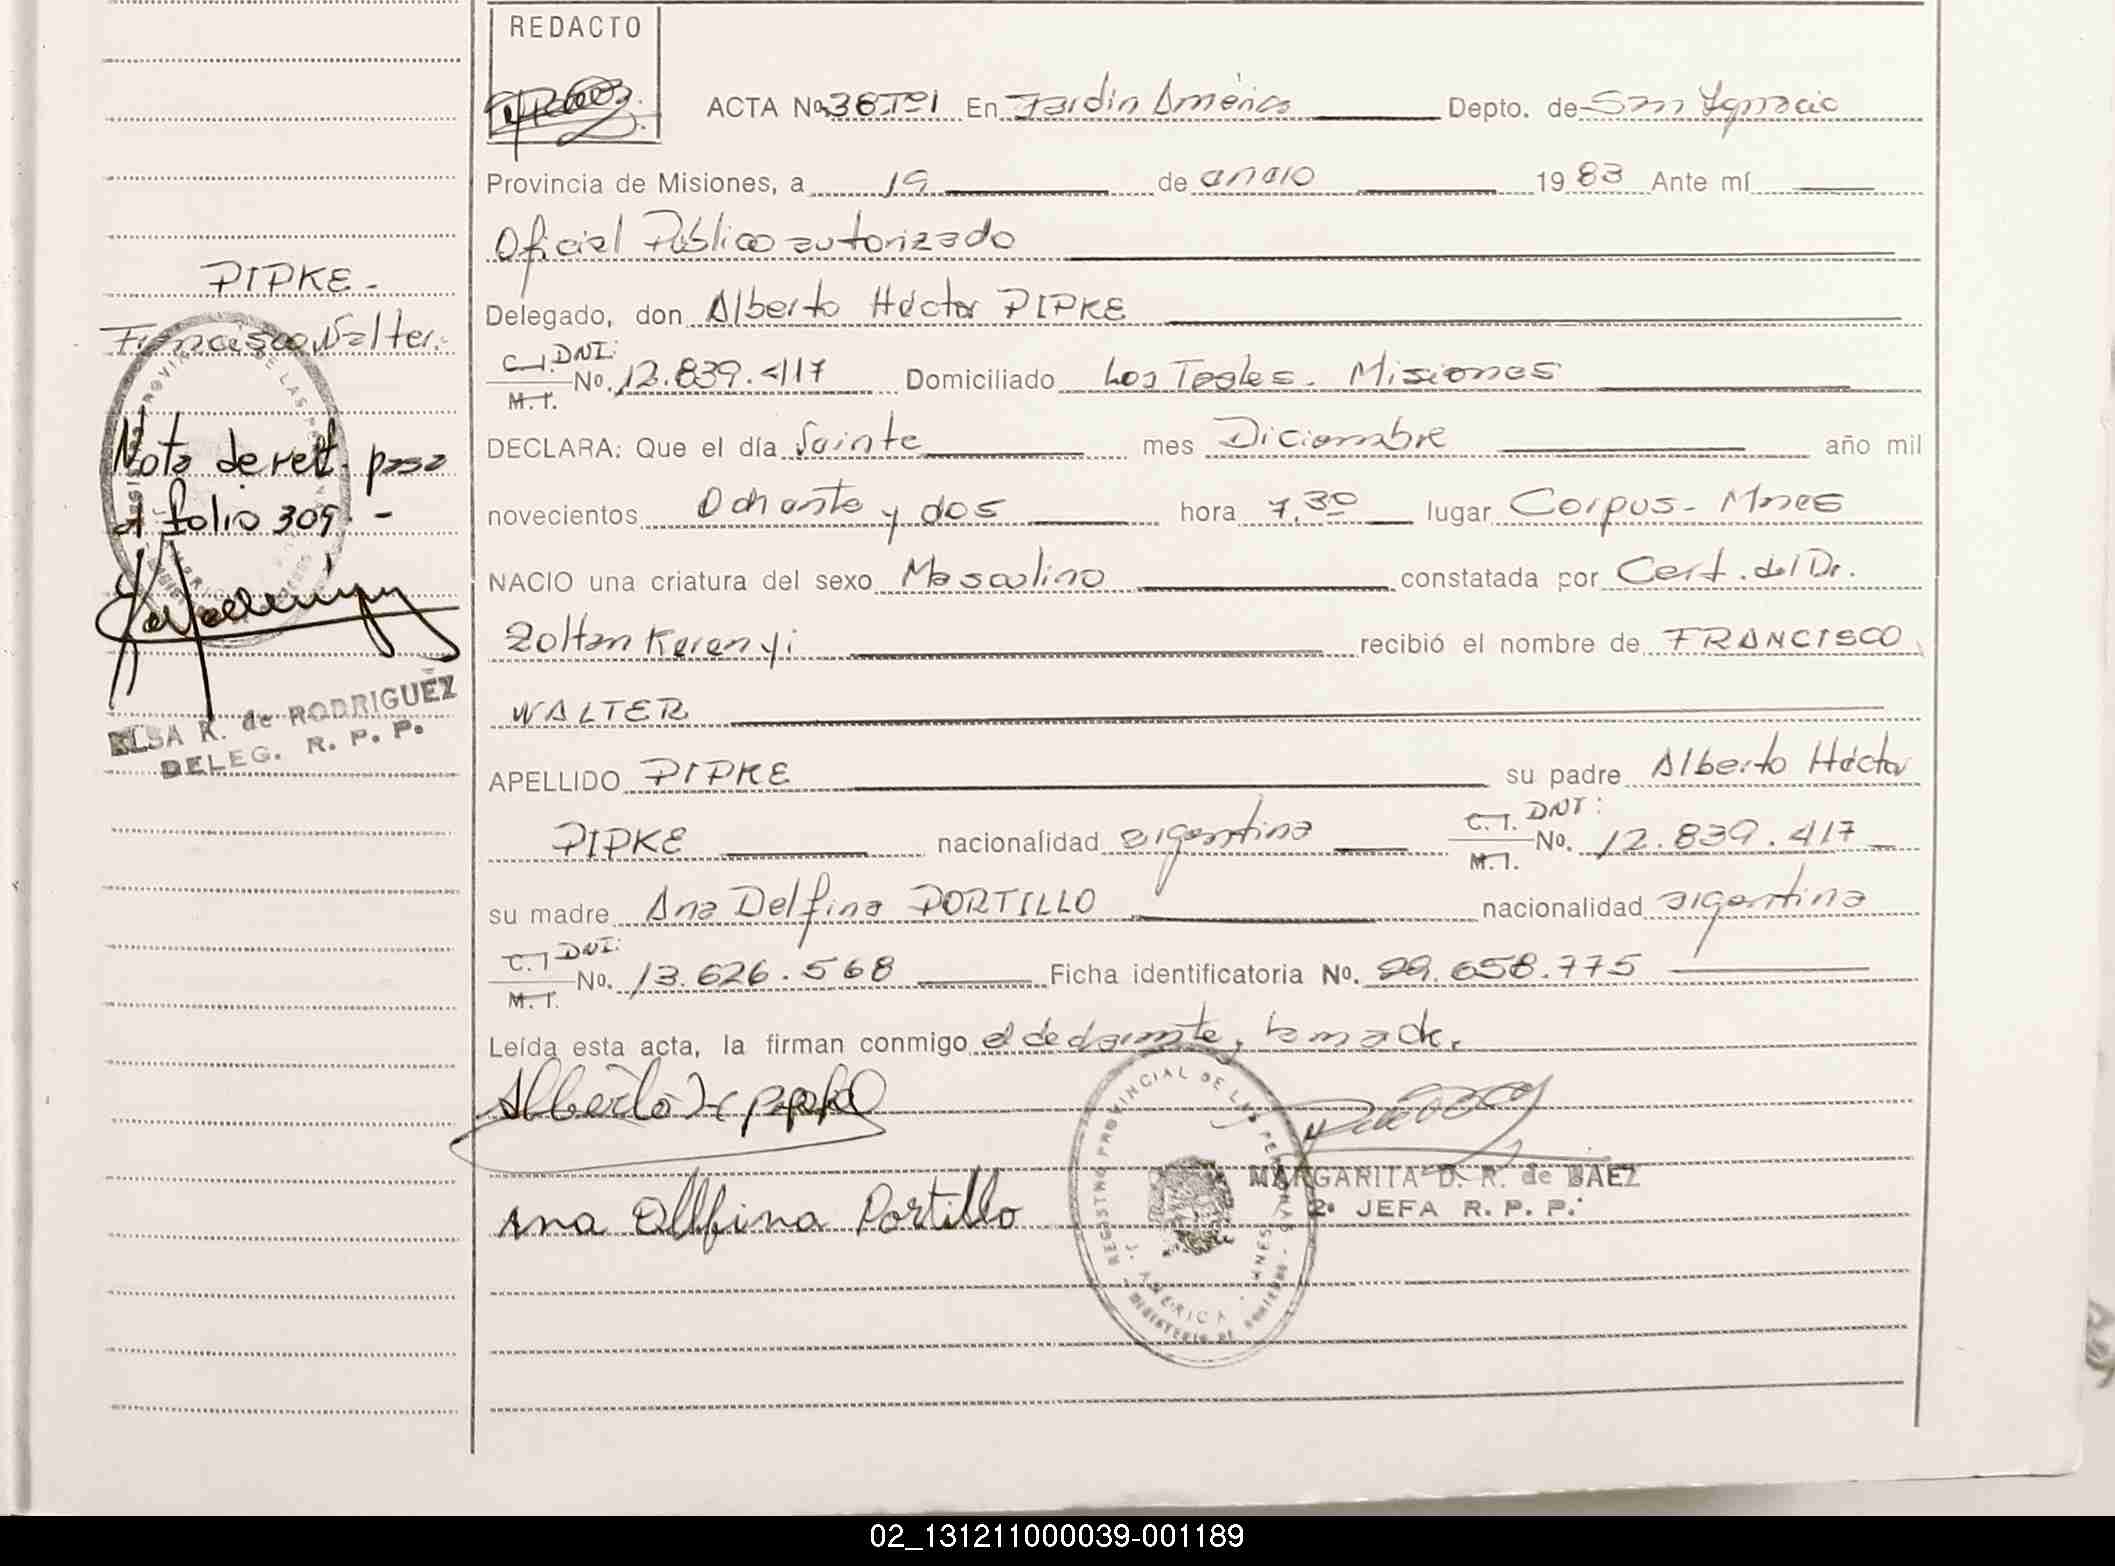 REDACTO
ACTA No. 36 Tº1 En Jardin América Depto. de San Ignacio
Provincia de Misiones, a 19 de enero 1983 Ante mí
Oficial Público autorizado
PIPKE-
Delegado, don Alberto Héctor PIPKE
Francisco Walter.-
C.I. DNI:
M.I. No. 12.839.417 Domiciliado Los Teales. Misiones
DECLARA: Que el día Veinte mes Diciembre año mil
Nota de rect. pasa
novecientos Ochenta y dos hora 7,30 lugar Corpus- Mnes
al folio 309.-
NACIO una criatura del sexo Masculino constatada por Cert. del Dr.
Zoltan Kerenyi recibió el nombre de FRANCISCO
WALTER
ELSA R. de RODRIGUEZ
DELEG. R. P. P.
APELLIDO PIPKE su padre Alberto Héctor
PIPKE nacionalidad argentina C.I. DNI: M.I. No. 12.839.417
su madre Ana Delfina PORTILLO nacionalidad argentina
C.I DNI:
M.I. No. 13.626.568 Ficha identificatoria No. 29.658.775
Leída esta acta, la firman conmigo el declarante, la madre.
Alberto H Pipke
REGISTRO PROVINCIAL DE LAS PERSONAS
MARGARITA D. R. de BAEZ
2ª JEFA R. P. P.
Ana Delfina Portillo
J. AMERICA - MNES
MINISTERIO DE GOBIERNO
02_131211000039-001189